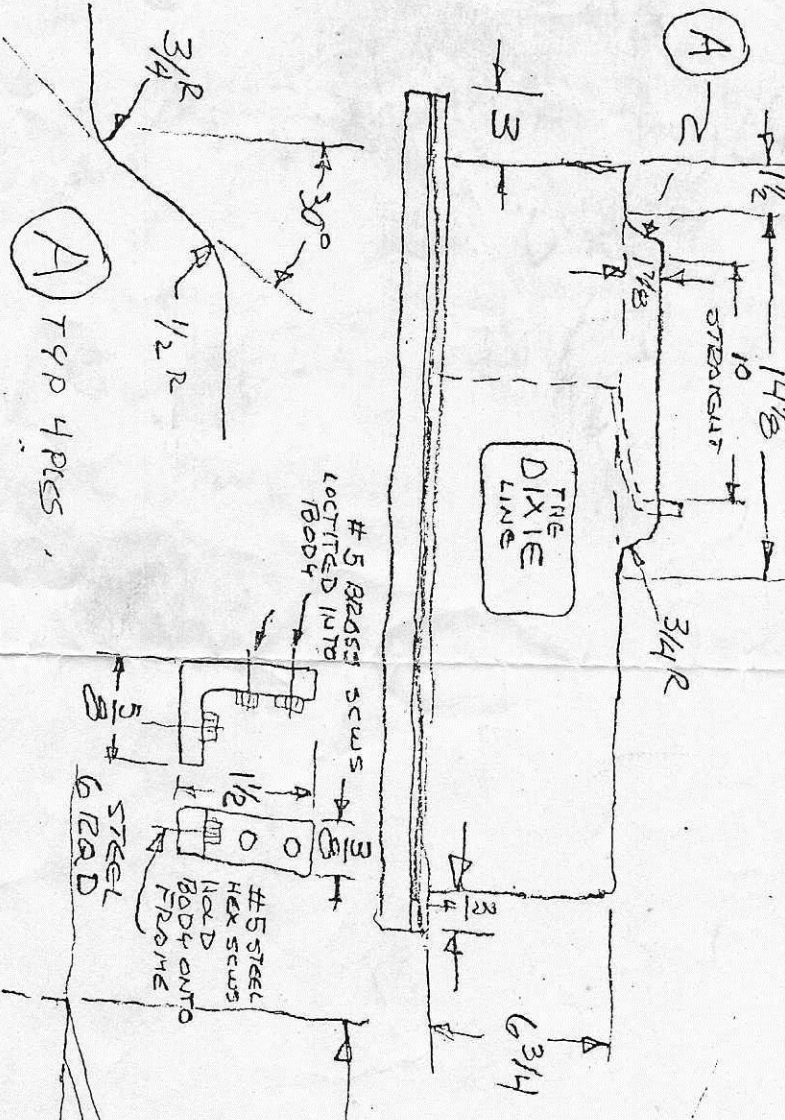 A
1 1/2
14 1/8
10
STRAIGHT
1 7/8
3
3/4 R
THE
DIXIE
LINE
3/4
6 3/4
3/4 R
30°
1/2 R
A TYP 4 PLCS.
# 5 BRASS SCWS
LOCTITED INTO
BODY
5/8
1 1/2
3/8
STEEL
6 RQD
#5 STEEL
HEX SCWS
HOLD
BODY ONTO
FRAME